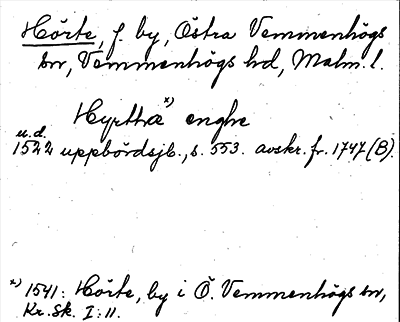 Hörte, f. by, Östra Vemmenhögs
sn, Vemmenhögs hd, Malm. l.
Hyrthæ*) enghe
u.d.
1522 uppbördsjb., s. 553. avskr. fr. 1747 (B).
*) 1541: Hörte, by i Ö. Vemmenhögs sn,
Kr. Sk. I:11.